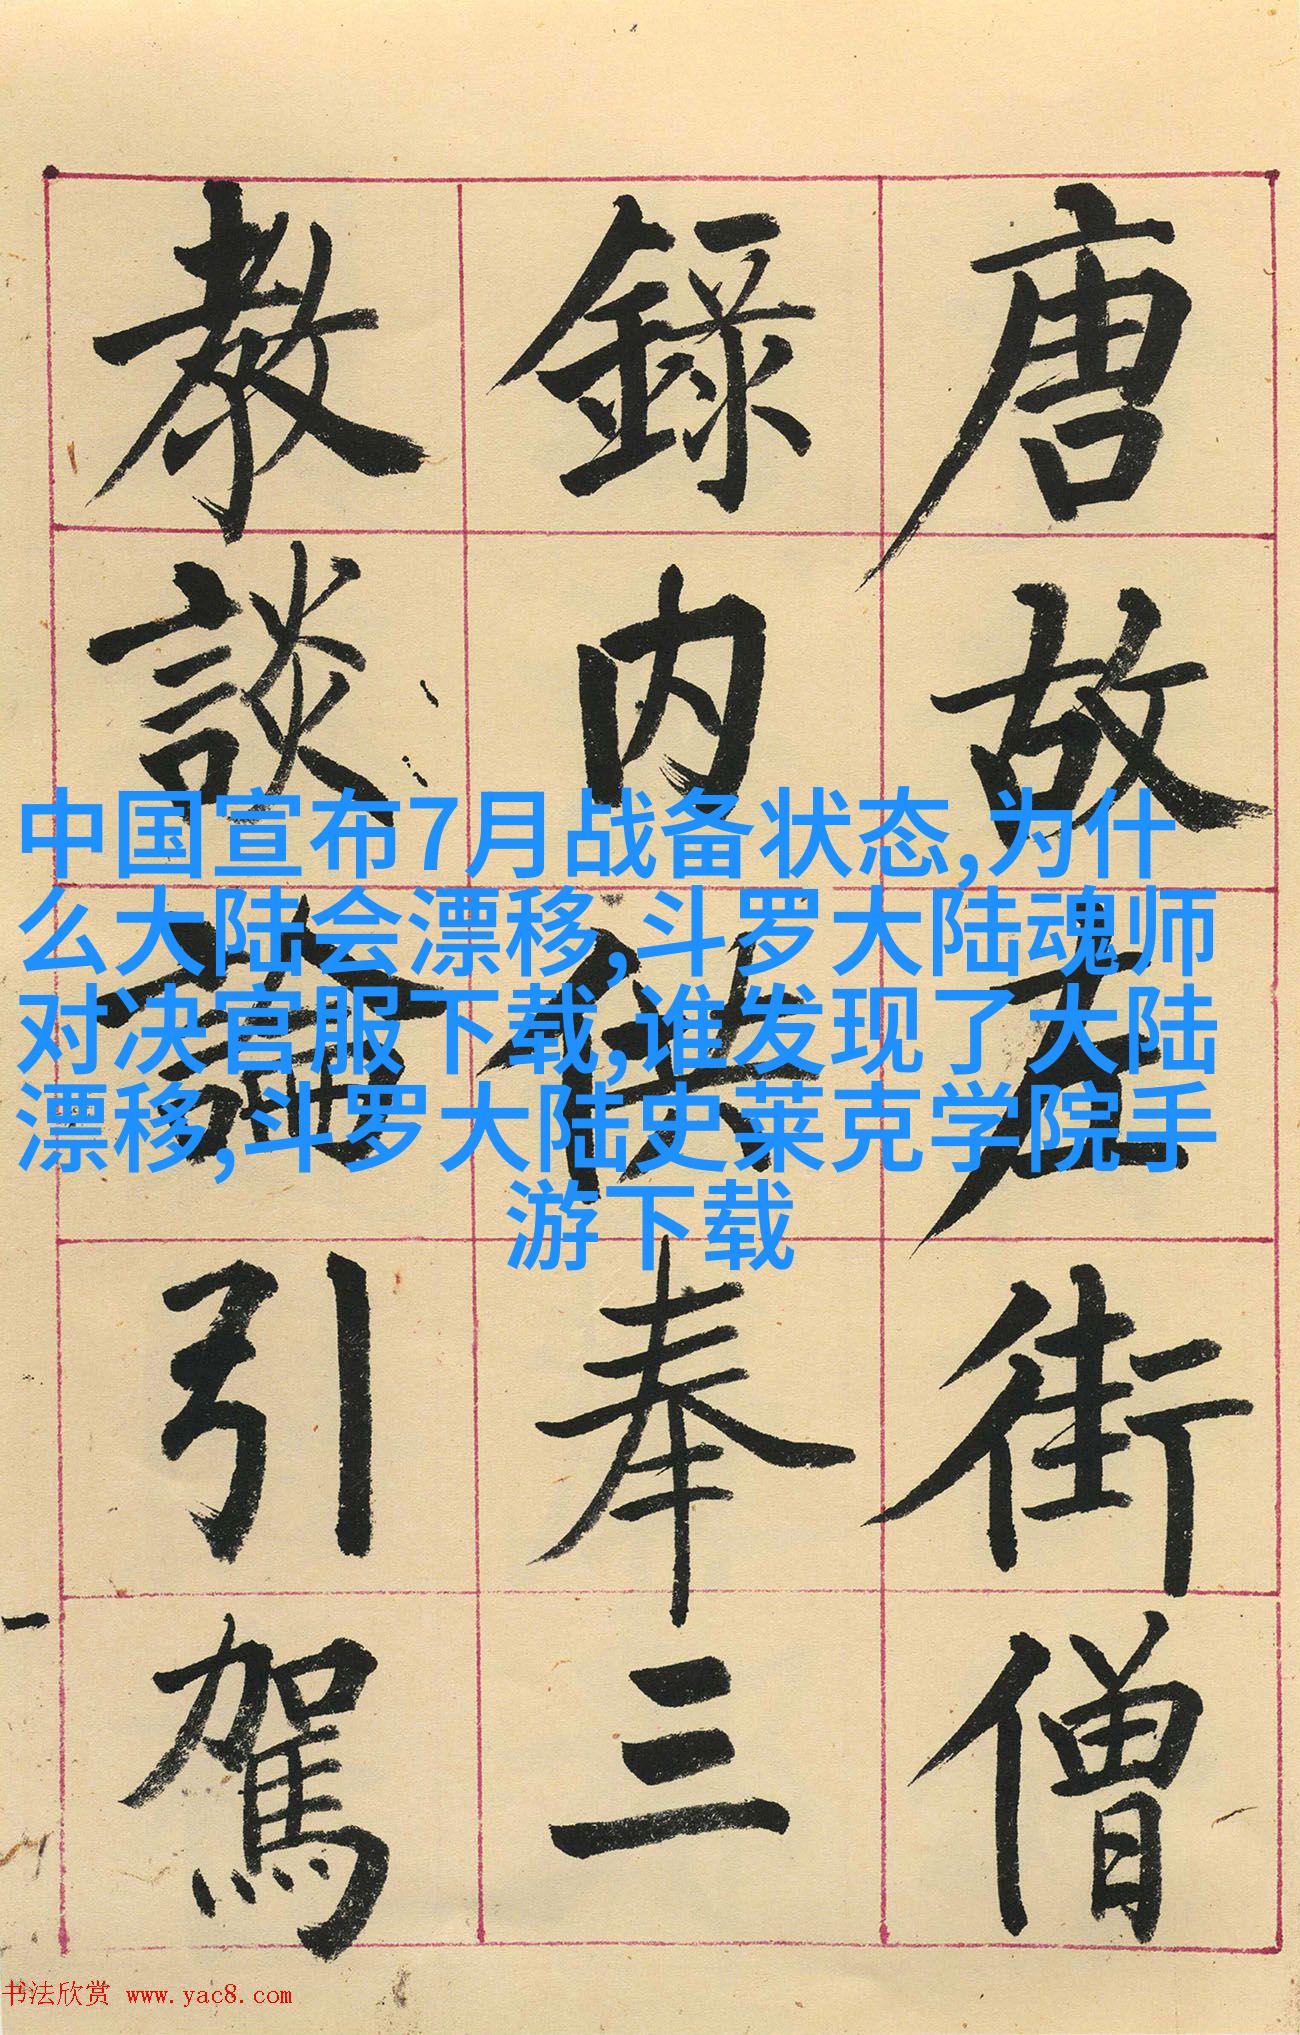 唐故左街僧
錄内供奉三
教談論引駕
中国宣布7月战备状态,为什
么大陆会漂移,斗罗大陆魂师
对决官服下载,谁发现了大陆
漂移,斗罗大陆史莱克学院手
游下载
书法欣赏 www.yac8.com